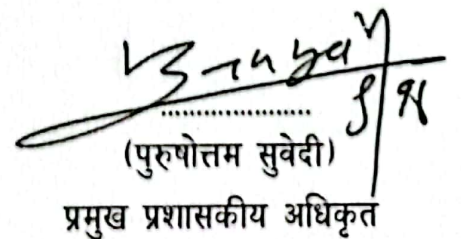 ....................
(पुरुषोत्तम सुवेदी)
प्रमुख प्रशासकीय अधिकृत